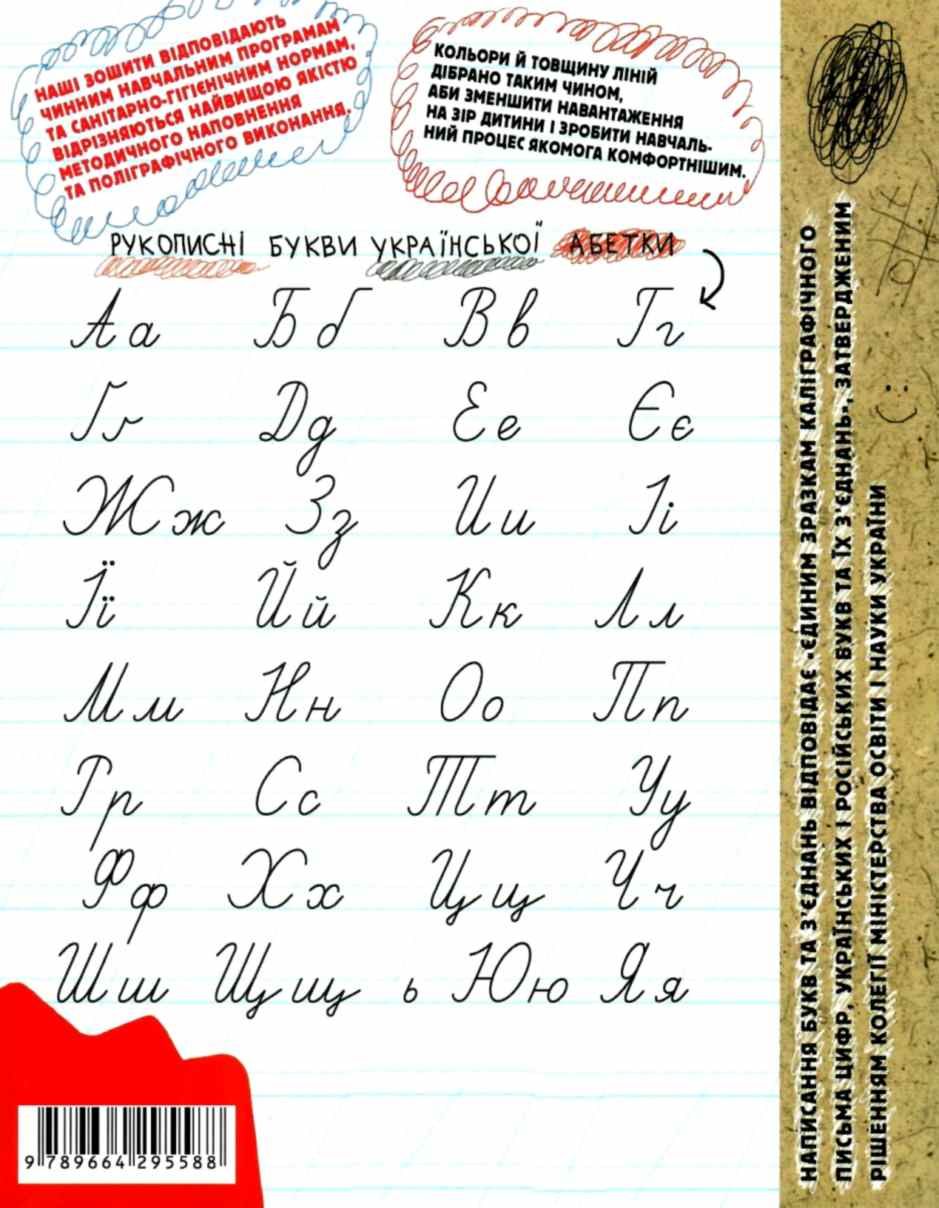 НАШІ ЗОШИТИ ВІДПОВІДАЮТЬ
ЧИННИМ НАВЧАЛЬНИМ ПРОГРАМАМ
ТА САНІТАРНО-ГІГІЄНІЧНИМ НОРМАМ,
ВІДРІЗНЯЮТЬСЯ НАЙВИЩОЮ ЯКІСТЮ
МЕТОДИЧНОГО НАПОВНЕННЯ
ТА ПОЛІГРАФІЧНОГО ВИКОНАННЯ.
КОЛЬОРИ Й ТОВЩИНУ ЛІНІЙ
ДІБРАНО ТАКИМ ЧИНОМ,
АБИ ЗМЕНШИТИ НАВАНТАЖЕННЯ
НА ЗІР ДИТИНИ І ЗРОБИТИ НАВЧАЛЬ-
НИЙ ПРОЦЕС ЯКОМОГА КОМФОРТНІШИМ.
РУКОПИСНІ БУКВИ УКРАЇНСЬКОЇ АБЕТКИ
Аа Бб Вв Гг
Ґґ Дд Ее Єє
Жж Зз Ии Іі
Її Йй Кк Лл
Мм Нн Оо Пп
Рр Сс Тт Уу
Фф Хх Цц Чч
Шш Щщ ь Юю Яя
9 789664 295588
НАПИСАННЯ БУКВ ТА З'ЄДНАНЬ ВІДПОВІДАЄ «ЄДИНИМ ЗРАЗКАМ КАЛІГРАФІЧНОГО
ПИСЬМА ЦИФР, УКРАЇНСЬКИХ І РОСІЙСЬКИХ БУКВ ТА ЇХ З'ЄДНАНЬ», ЗАТВЕРДЖЕНИМ
РІШЕННЯМ КОЛЕГІЇ МІНІСТЕРСТВА ОСВІТИ І НАУКИ УКРАЇНИ